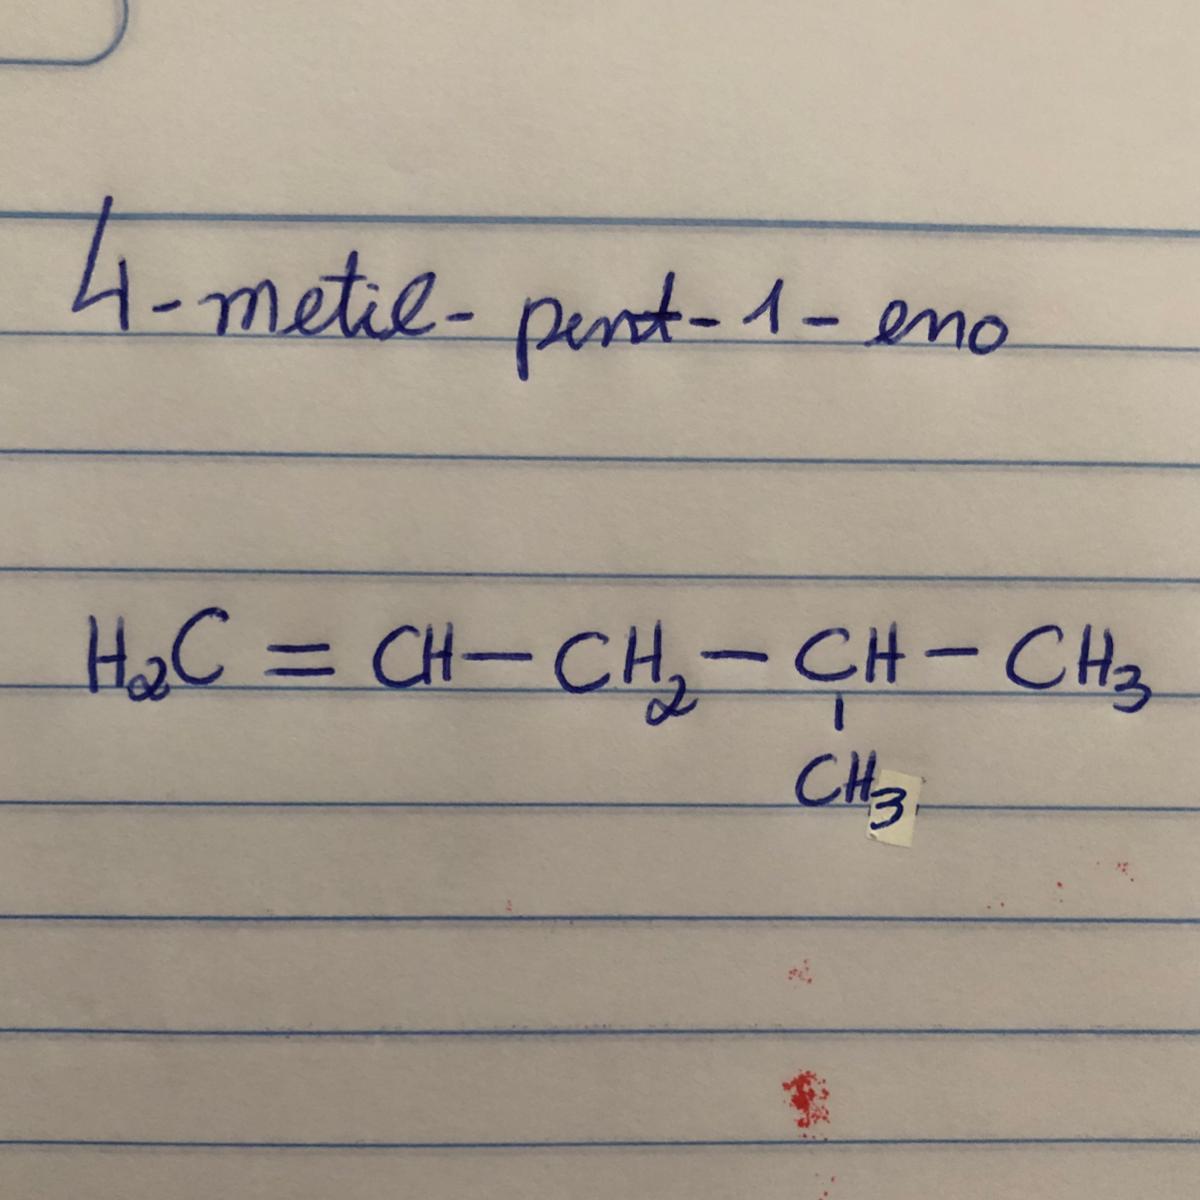 4-metil-pent-1-eno
H₂C = CH — CH₂ — CH — CH₃
CH₃